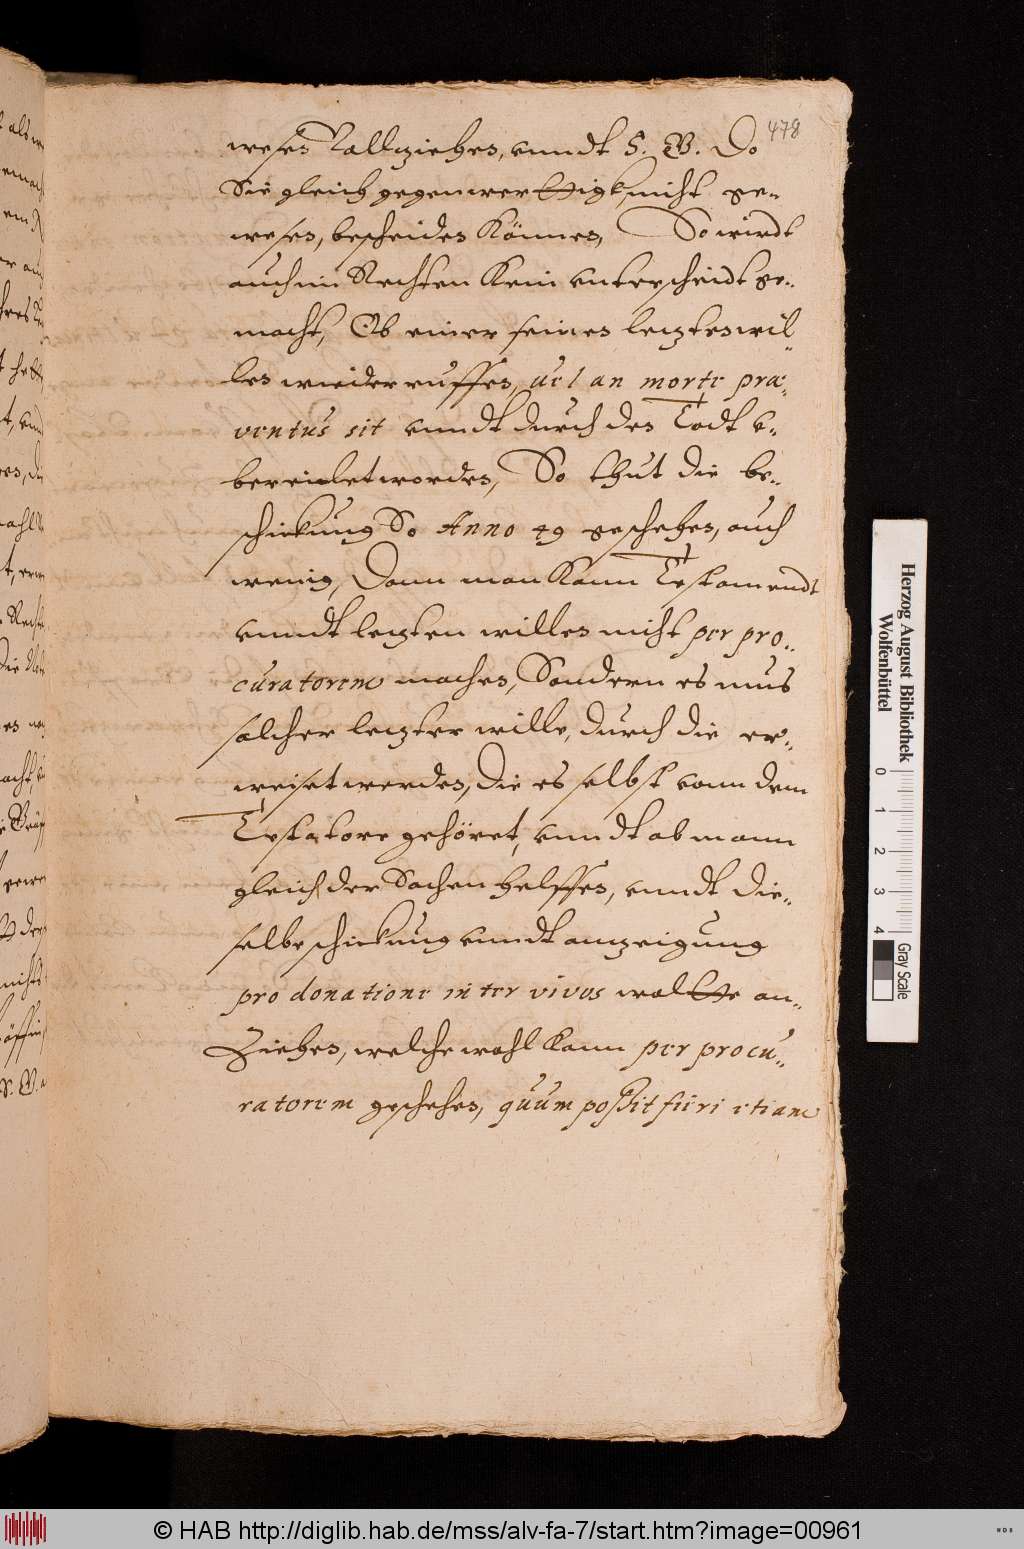 478
wesen Vollziehen, vnndt E. G. Do
Sie gleich gegenwerttigk nicht ge-
wesen, bescheiden Können, So wirdt
auch im Rechten Kein unterscheidt ge-
macht, Ob einer seinen letzten wil-
len wiederruffen, vel an morte præ-
ventus sit vnndt durch den Todt v-
bereilet worden, So thut die be-
schickung So Anno 49 geschehen, auch
wenig, Dann man Kann Testamendt
vnndt letzten willen nicht per pro-
curatorem machen, Sondern es mus
solcher letzter wille, durch die er-
weiset werden, die es selbst vonn dem
Testatore gehöret, vnndt ob mann
gleich der Sachen helffen, vnndt die-
selbe schickung vnndt anzeigung
pro donatione inter vivos wollte an-
Ziehen, welche wohl Kann per procu-
ratorem geschehen, quum possit fieri etiam
Herzog August Bibliothek
Wolfenbüttel
0 1 2 3 4
Gray Scale
© HAB http://diglib.hab.de/mss/alv-fa-7/start.htm?image=00961